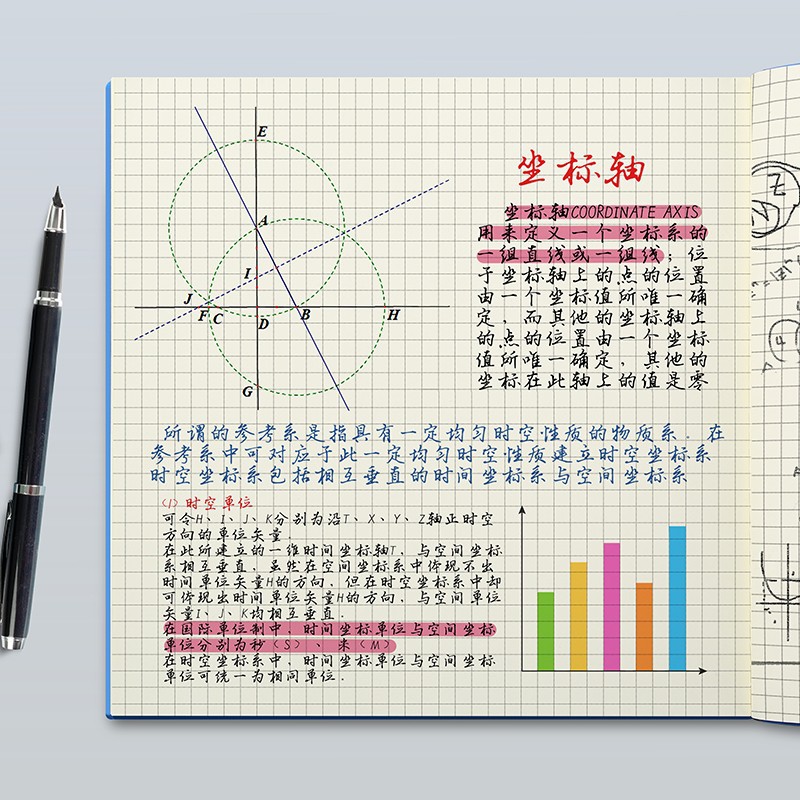 E
A
I
J
F
C
D
B
H
G
坐标轴
坐标轴COORDINATE AXIS
用来定义一个坐标系的
一组直线或一组线；位
于坐标轴上的点的位置
由一个坐标值所唯一确
定，而其他的坐标轴上
的点的位置由一个坐标
值所唯一确定，其他的
坐标在此轴上的值是零
所谓的参考系是指具有一定均匀时空性质的物质系．在
参考系中可对应于此一定均匀时空性质建立时空坐标系
时空坐标系包括相互垂直的时间坐标系与空间坐标系
(1) 时空单位
可令H、I、J、K分别为沿T、X、Y、Z轴正时空
方向的单位矢量．
在此所建立的一维时间坐标轴T，与空间坐标
系相互垂直，虽然在空间坐标系中体现不出
时间单位矢量H的方向，但在时空坐标系中却
可体现出时间单位矢量H的方向，与空间单位
矢量I、J、K均相互垂直．
在国际单位制中，时间坐标单位与空间坐标
单位分别为秒（S）、米（M）
在时空坐标系中，时间坐标单位与空间坐标
单位可统一为相同单位．
Z